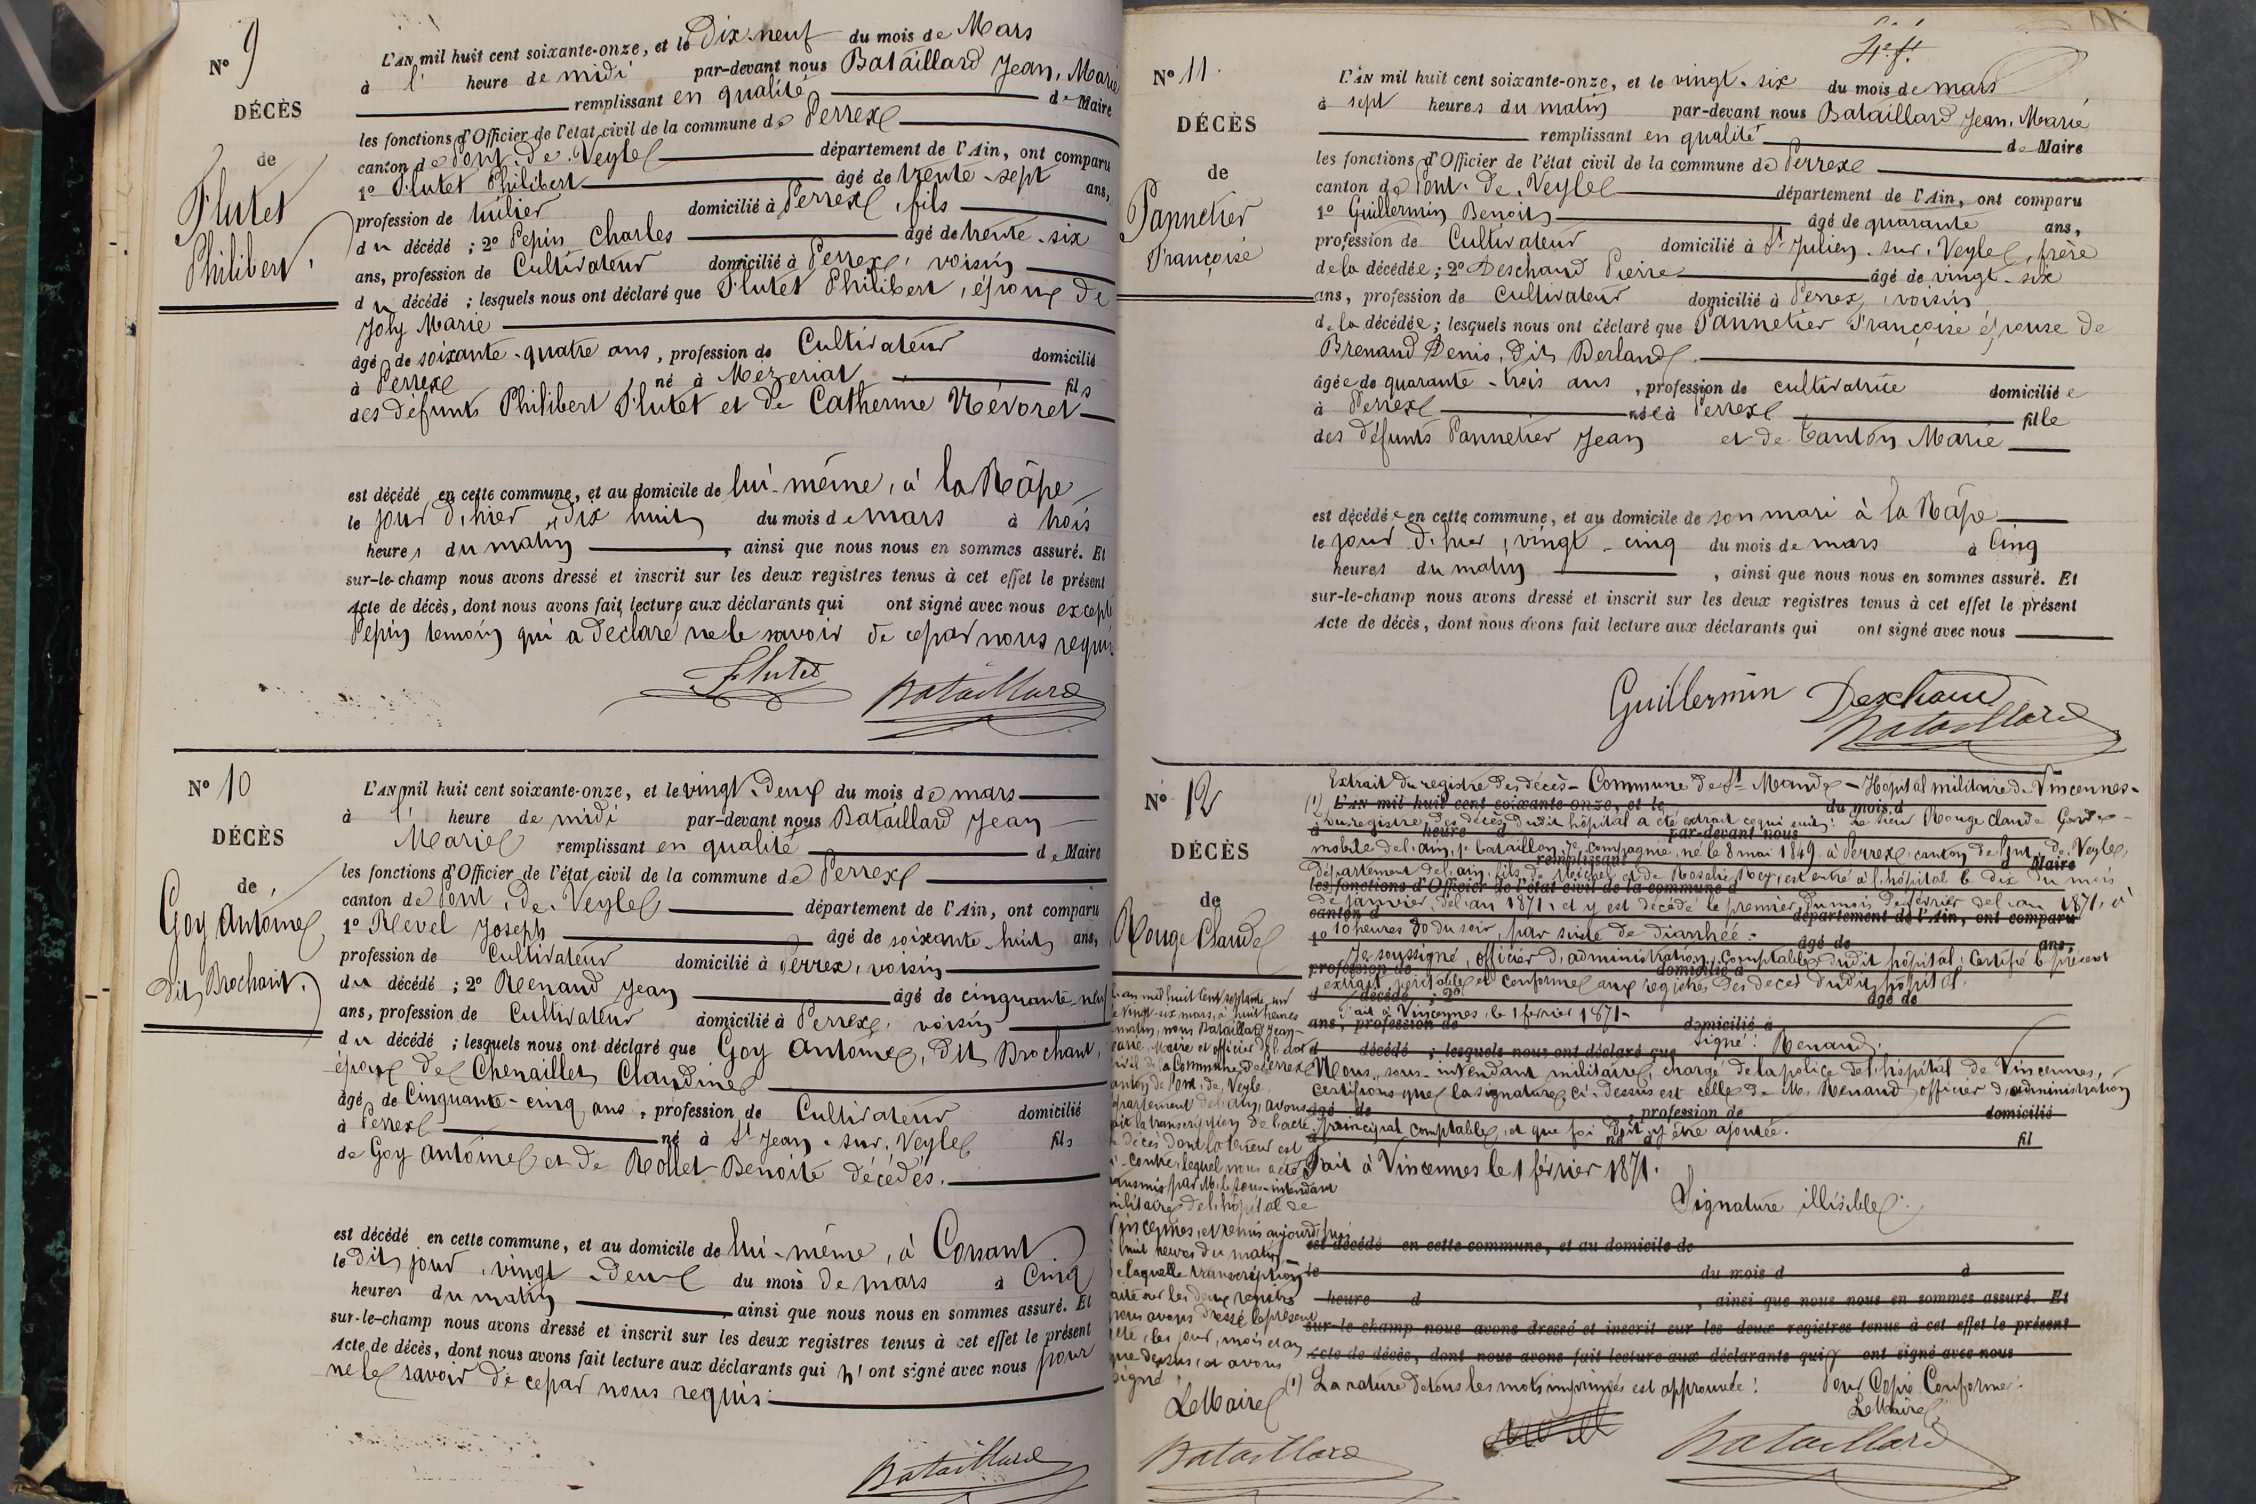 N° 9
DÉCÈS
de
Flutet
Philibert.
L'AN mil huit cent soixante-onze, et le Dix-neuf du mois de Mars
à l' heure de midi par-devant nous Bataillard Jean, Marie
remplissant en qualité de Maire
les fonctions d'Officier de l'état civil de la commune de Perrex
canton de Pont-de-Veyle département de l'Ain, ont comparu
1° Flutet Philibert âgé de trente-sept ans,
profession de tuilier domicilié à Perrex, fils
du décédé ; 2° Pepin Charles âgé de trente-six
ans, profession de Cultivateur domicilié à Perrex, voisin
du décédé ; lesquels nous ont déclaré que Flutet Philibert, époux de
Joly Marie
âgé de soixante-quatre ans, profession de Cultivateur domicilié
à Perrex né à Mezeriat fils
des défunts Philibert Flutet et de Catherine Névoret
est décédé en cette commune, et au domicile de lui-même, à la Râpe
le jour d'hier, dix huit du mois de mars à trois
heures du matin, ainsi que nous nous en sommes assuré. Et
sur-le-champ nous avons dressé et inscrit sur les deux registres tenus à cet effet le présent
Acte de décès, dont nous avons fait lecture aux déclarants qui ont signé avec nous excepté
Pepin temoin qui a déclaré ne le savoir de ce par nous requis
Flutet Bataillard
N° 10
DÉCÈS
de
Goy Antoine
dit Brochant.
L'AN mil huit cent soixante-onze, et le vingt-deux du mois de mars
à l' heure de midi par-devant nous Bataillard Jean
Marie remplissant en qualité de Maire
les fonctions d'Officier de l'état civil de la commune de Perrex
canton de Pont-de-Veyle département de l'Ain, ont comparu
1° Revel Joseph âgé de soixante-huit ans,
profession de Cultivateur domicilié à Perrex, voisin
du décédé ; 2° Renand Jean âgé de cinquante-neuf
ans, profession de Cultivateur domicilié à Perrex, voisin
du décédé ; lesquels nous ont déclaré que Goy Antoine, dit Brochant,
époux de Chenaillet Claudine
âgé de Cinquante-cinq ans, profession de Cultivateur domicilié
à Perrex né à St Jean-sur-Veyle fils
de Goy Antoine et de Rollet Benoite décédés.
est décédé en cette commune, et au domicile de lui-même, à Corsant
le dit jour, vingt-deux du mois de mars à Cinq
heures du matin, ainsi que nous nous en sommes assuré. Et
sur-le-champ nous avons dressé et inscrit sur les deux registres tenus à cet effet le présent
Acte de décès, dont nous avons fait lecture aux déclarants qui n'ont signé avec nous pour
ne le savoir de ce par nous requis.
Bataillard
N° 11.
DÉCÈS
de
Pannetier
Françoise
L'AN mil huit cent soixante-onze, et le vingt-six du mois de mars
à sept heures du matin par-devant nous Bataillard Jean, Marie
remplissant en qualité de Maire
les fonctions d'Officier de l'état civil de la commune de Perrex
canton de Pont-de-Veyle département de l'Ain, ont comparu
1° Guillermin Benoit âgé de quarante ans,
profession de Cultivateur domicilié à St Julien-sur-Veyle, frère
de la décédée ; 2° Deschaud Pierre âgé de vingt-six
ans, profession de Cultivateur domicilié à Perrex, voisin
de la décédée ; lesquels nous ont déclaré que Pannetier Françoise épouse de
Brenand Denis, dit Berland.
âgée de quarante-trois ans, profession de cultivatrice domiciliée
à Perrex née à Perrex fille
des défunts Pannetier Jean et de Tanton Marie
est décédée en cette commune, et au domicile de son mari à la Râpe
le jour d'hier, vingt-cinq du mois de mars à Cinq
heures du matin, ainsi que nous nous en sommes assuré. Et
sur-le-champ nous avons dressé et inscrit sur les deux registres tenus à cet effet le présent
Acte de décès, dont nous avons fait lecture aux déclarants qui ont signé avec nous
Guillermin Deschaud
Bataillard
N° 12
DÉCÈS
de
Rouge Claude
Extrait du registre des décès - Commune de St Mandé - Hopital militaire de Vincennes -
(1) L'AN mil huit cent soixante-onze, et le du mois d
Du registre des décès dudit hôpital a été extrait ce qui suit : Le sieur Rouge Claude Garde
à heure d par-devant nous
mobile de l'ain, 1er bataillon, compagnie, né le 8 mai 1849 à Perrex, canton de Pont-de-Veyle,
remplissant Maire
Département de l'ain, fils de Michel et de Rosalie Rey, est entré à l'hôpital le dix du mois
les fonctions d'Officier de l'état civil de la commune d
de janvier, de l'an 1871, et y est décédé le premier du mois de février de l'an 1871, à
canton d département de l'Ain, ont comparu
10 heures 30 du soir, par suite de diarrhée.
1° âgé de ans,
Je soussigné, officier d'administration, Comptable dudit hôpital, Certifie le présent
profession de domicilié à
extrait véritable et conforme aux registres des décès dudit hôpital.
d décédé ; 2° âgé de
Fait à Vincennes, le 1 février 1871.
ans, profession de domicilié à
Signé : Renand.
d décédé ; lesquels nous ont déclaré que
Nous, sous-intendant militaire, chargé de la police de l'hôpital de Vincennes,
Certifions que la signature ci-dessus est celle de M. Renand officier d'administration
âgé de, profession de domicilié
principal comptable, et que foi doit y être ajoutée.
à né à fil
Fait à Vincennes le 1 février 1871.
Signature illisible.
est décédé en cette commune, et au domicile de
le du mois d à
heure d, ainsi que nous nous en sommes assuré. Et
sur-le-champ nous avons dressé et inscrit sur les deux registres tenus à cet effet le présent
Acte de décès, dont nous avons fait lecture aux déclarants qui ont signé avec nous
(1) La rature de tous les mots imprimés est approuvée : Pour Copie Conforme.
Le Maire
Bataillard
L'an mil huit cent septante-un
le vingt-six mars, à huit heures
matin, nous Bataillard Jean-
Marie, Maire et officier de l'état
civil de la Commune de Perrex
canton de Pont-de-Veyle,
département de l'ain, avons
fait la transcription de l'acte
de décès dont la teneur est
ci-contre, lequel nous a été
transmis par M. le sous-intendant
militaire de l'hôpital de
Vincennes, et remis aujourd'hui
à huit heures du matin
de laquelle transcription
faite sur les deux registres
nous avons dressé le présent
acte, les jour, mois et an
que dessus, et avons
signé.
Le Maire
Bataillard